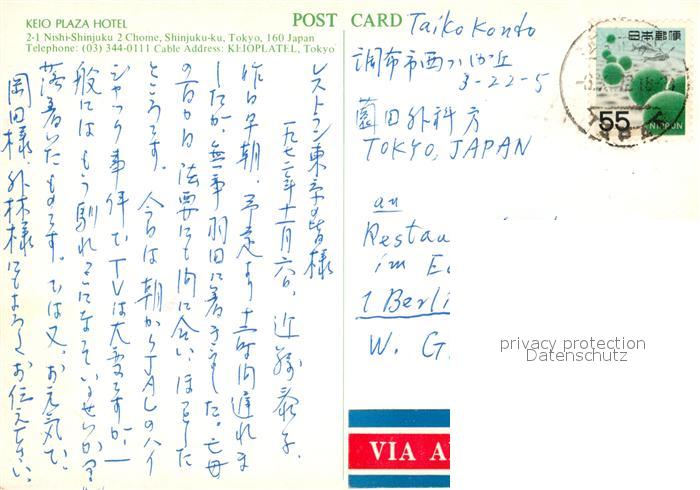 KEIO PLAZA HOTEL
2-1 Nishi-Shinjuku 2 Chome, Shinjuku-ku, Tokyo, 160 Japan
Telephone: (03) 344-0111 Cable Address: KEIOPLATEL, Tokyo
POST CARD
Taiko Kondo
調布市西つつじヶ丘
3-22-5
薗田外科方
TOKYO, JAPAN
an
Restau
im E
1 Berli
W. G
日本郵便
55
NIPPON
レストラン東京の皆様
一九七二年十一月六日、近藤泰子
昨日早朝、予定より十二時間遅れま
したが、無事羽田に着きました。亡母
の百か日法要にも間に合い、ほっとした
ところです。今日は朝からJALのハイ
ジャック事件でTVは大変ですが、一
般にはもう馴れっこになっているせいか
落着いたものです。では又、お元気で。
岡田様、外林様にもよろしくお伝え下さい。
VIA A
privacy protection
Datenschutz